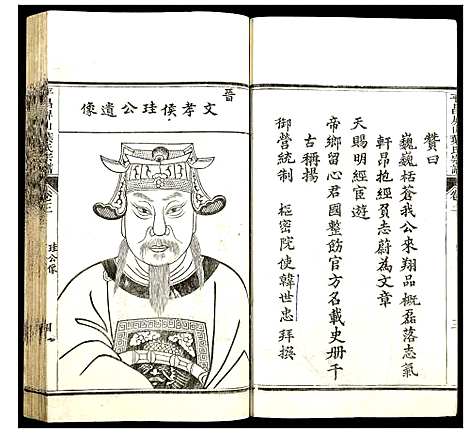 贊曰
巍巍栝蒼我公來翔品概磊落志氣
軒昂抱經負志蔚為文章
天賜明經宦遊
帝鄉留心君國整飭官方名載史册千
古稱揚
御營統制　樞密院使韓世忠拜撰
晉
文孝侯珪公遺像
珪公像